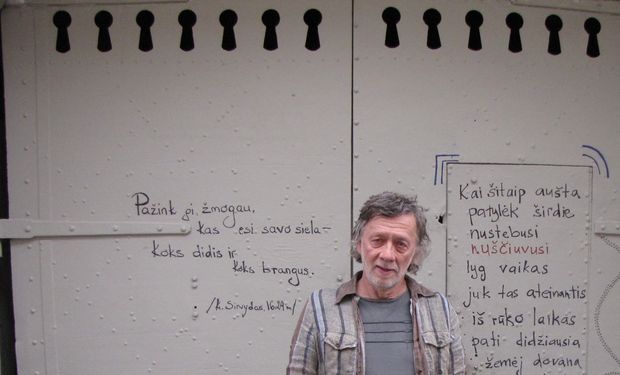 Pažink gi, žmogau,
kas esi savo siela –
koks didis ir
koks brangus.
/k. Sirvydas, 1629 m/
Kai šitaip aušta
patylėk širdie
nustebusi
nuščiuvusi
lyg vaikas
juk tas ateinantis
iš rūko laikas
pati didžiausia
žemėj dovana